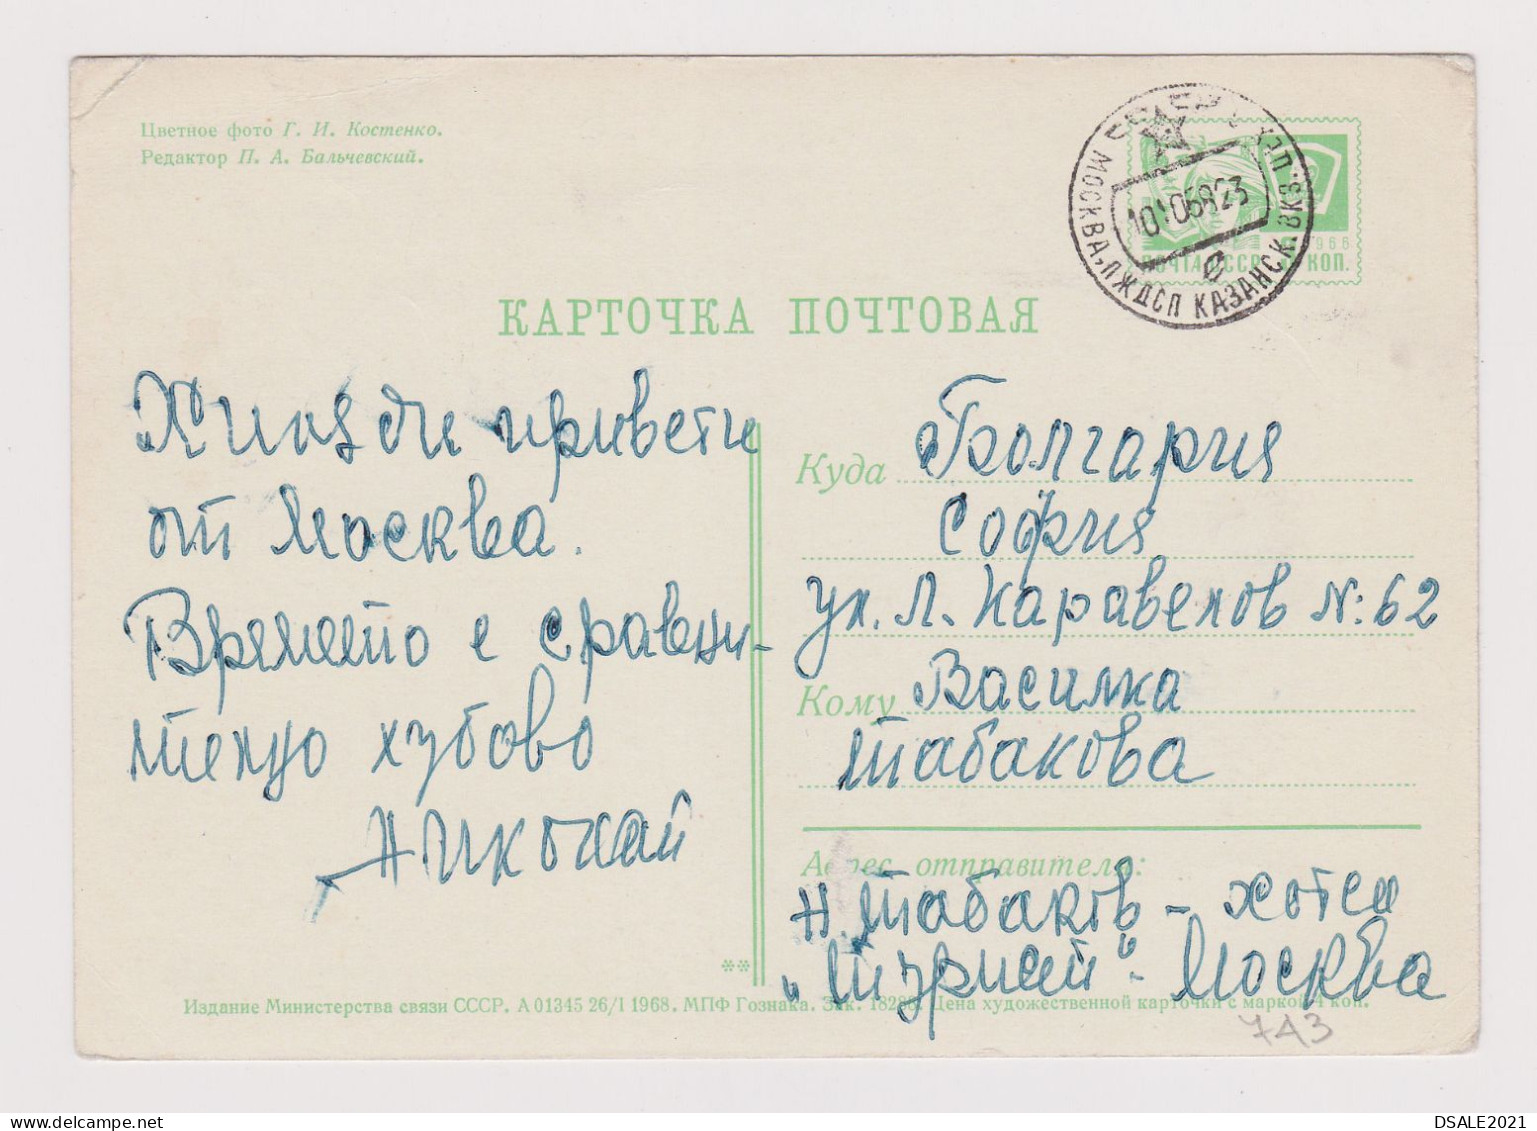 Цветное фото Г. И. Костенко.
Редактор П. А. Бальчевский.
МОСКВА, ПЖДСП КАЗАНСК. ВКЗ.
1966
ПОЧТА СССР КОП.
КАРТОЧКА ПОЧТОВАЯ
Хиляди привети
от Москва.
Времето е сравни-
телно хубово
Николай
Куда Болгария
София
ул. Л. Каравелов №: 62
Кому Василка
Табакова
Адрес отправителя:
Н. Табаков - хотел
„Турист" - Москва
**
Издание Министерства связи СССР. А 01345 26/I 1968. МПФ Гознака. Зак. 18288. Цена художественной карточки с маркой 4 коп.
743
DSALE2021